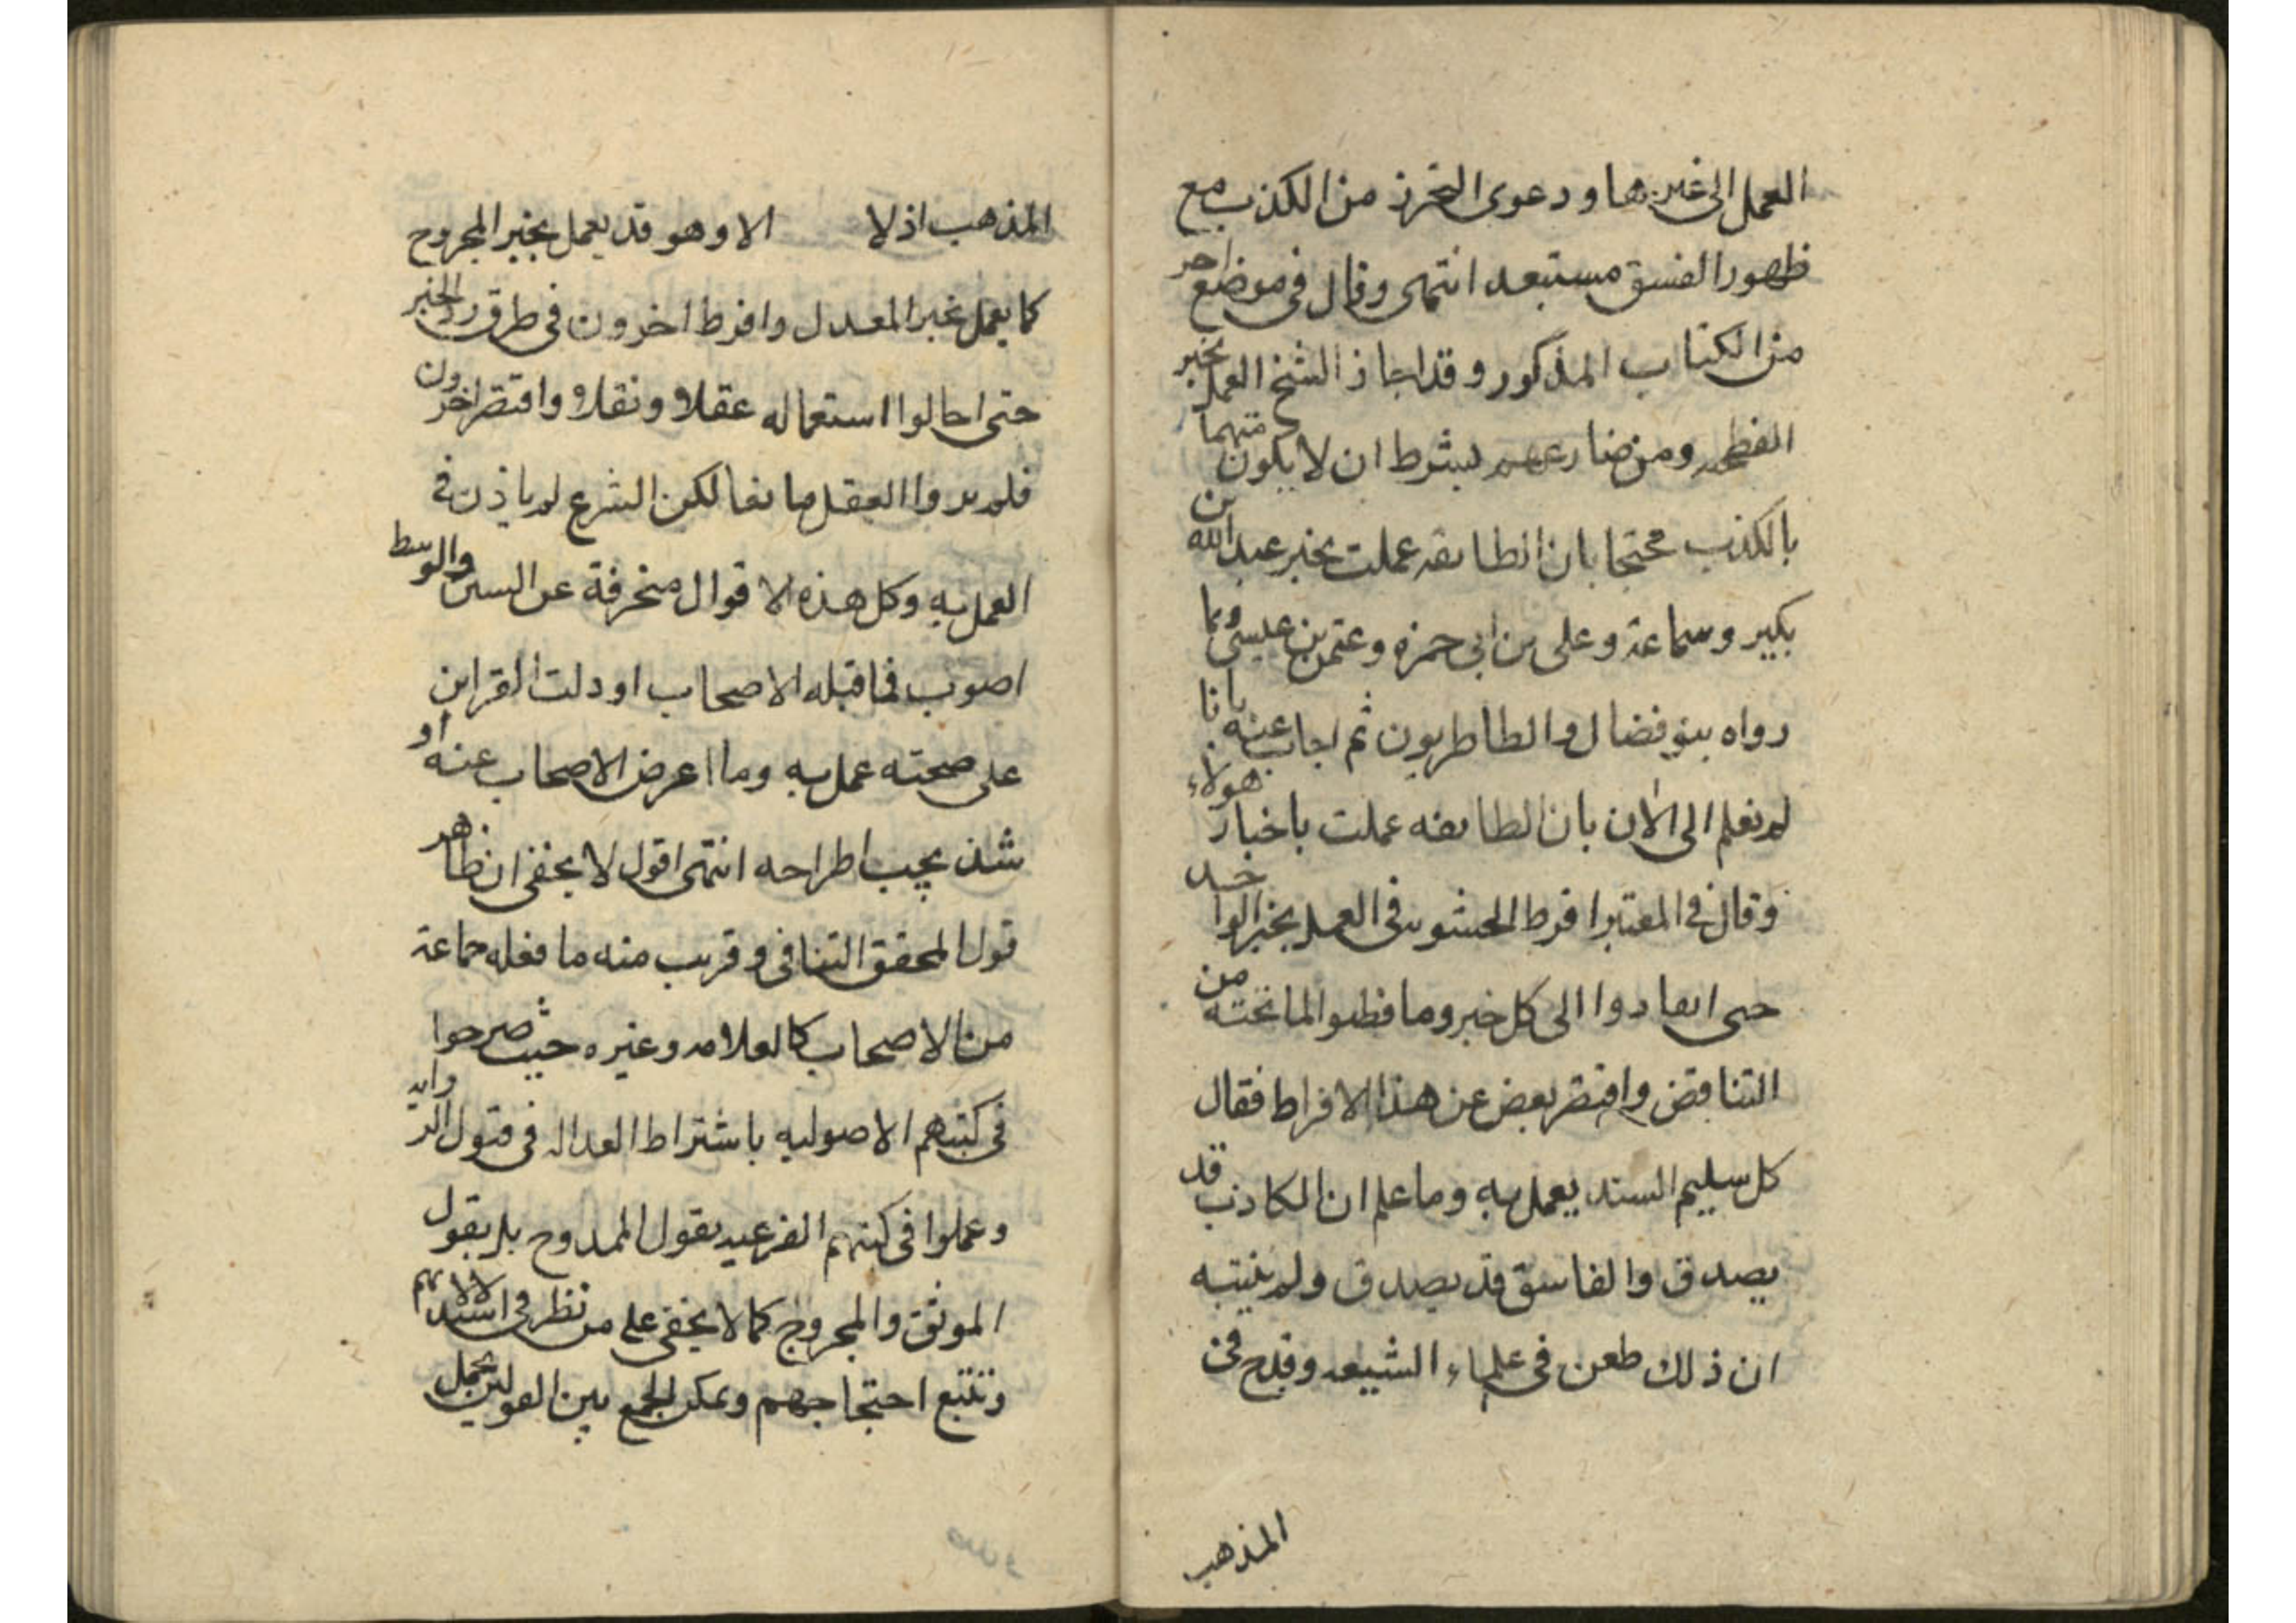 العمل الى غيرها ودعوى التحرز من الكذب مع
ظهور الفسق مستبعد انتهى وقال فى موضع اخر
من الكتاب المذكور وقد اجاز الشيخ العمل بخبر
الفطحيه ومن ضارعهم بشرط ان لا يكون متهما
بالكذب محتجا بان الطايفه عملت بخبر عبد الله بن
بكير وسماعة وعلى بن ابى حمزه وعثمن بن عيسى وبما
رواه بنو فضال والطاطريون ثم اجاب عنه بانا
لم نعلم الى الان بان الطايفه عملت باخبار هولاء
وقال فى المعتبر افرط الحشويه فى العمل بخبر الواحد
حتى انقادوا الى كل خبر وما فطنوا لما تحته من
التناقض واقتصر بعض عن هذا الافراط فقال
كل سليم السند يعمل به وما علم ان الكاذب قد
يصدق والفاسق قد يصدق ولم يتنبه
ان ذلك طعن فى علماء الشيعه وقدح فى
المذهب
المذهب اذ لا الا وهو قد يعمل بخبر المجروح
كما يعمل بخبر المعدل وافرط اخرون فى طرق رد الخبر
حتى احالوا استعماله عقلا ونقلا واقتصر اخرون
فلم يروا العقل مانعا لكن الشرع لم ياذن فى
العمل به وكل هذه الاقوال منحرفة عن السنن والوسط
اصوب فما قبله الاصحاب او دلت القراين
على صحته عمل به وما اعرض الاصحاب عنه او
شذ يجب اطراحه انتهى اقول لا يخفى ان ظاهر
قول المحقق التنافى وقريب منه ما فعله جماعة
من الاصحاب كالعلامه وغيره حيث صرحوا
فى كتبهم الاصوليه باشتراط العداله فى قبول الروايه
وعملوا فى كتبهم الفرعيه بقول الممدوح بل بقول
الموثق والمجروح كما لا يخفى على من نظر فى استدلالاتهم
وتتبع احتجاجهم ويمكن الجمع بين القولين بحمل